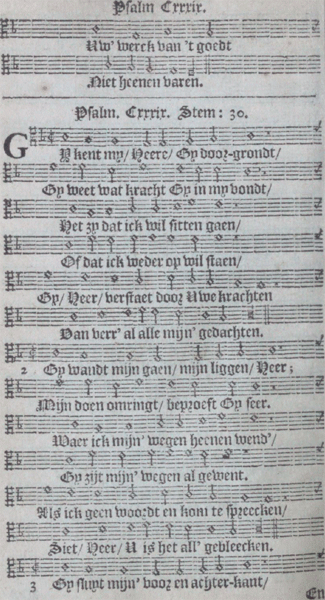 Psalm Cxxxix.
Uw' werck van 't goedt
Niet heenen varen.
Psalm. Cxxxix. Stem: 30.
GY kent my/ Heere/ Gy door-grondt/
Gy weet wat kracht Gy in my vondt/
Het zy dat ick wil sitten gaen/
Of dat ick weder op wil staen/
Gy/ Heer/ verstaet door Uwe krachten
Van verr' al alle mijn' gedachten.
2 Gy wandt mijn gaen/ mijn liggen/ Heer;
Mijn doen omringt/ beproeft Gy seer.
Waer ick mijn' wegen heenen wend'/
Gy zijt mijn' wegen al gewent.
Als ick geen woordt en kom te spreecken/
Siet/ Heer/ U is het all' gebleecken.
3 Gy sluyt mijn' voor en achter-kant/
En